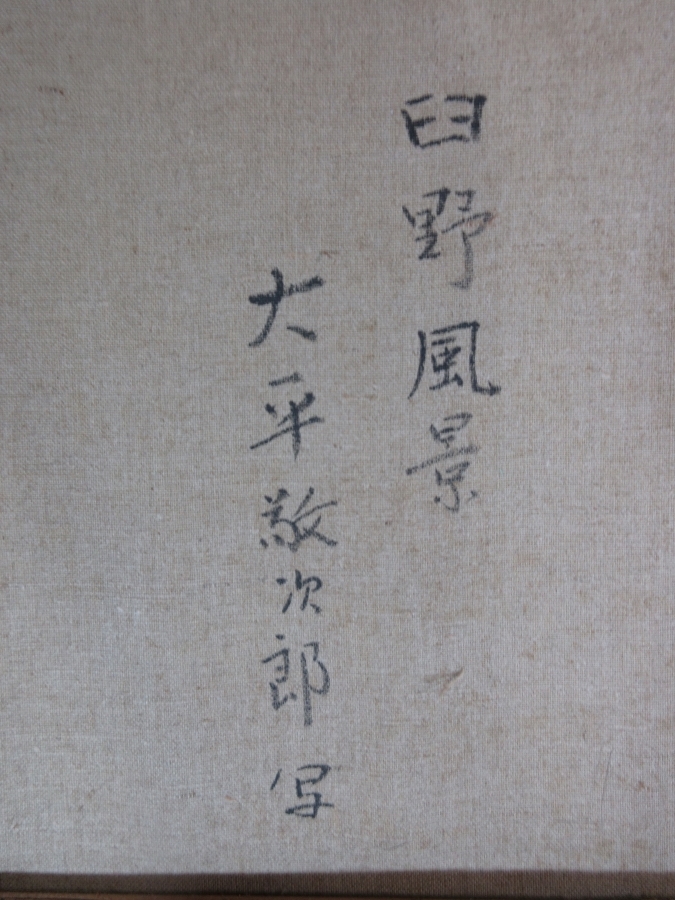 臼野風景
大平敬次郎写